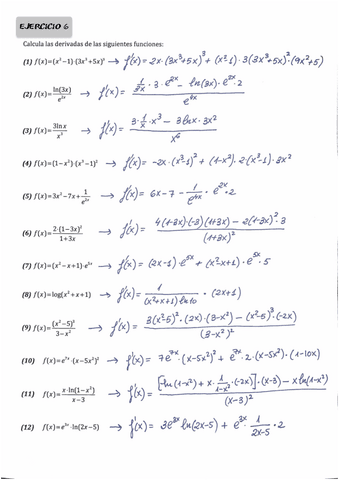 EJERCICIO 6
Calcula las derivadas de las siguientes funciones:
(1) f(x)=(x²−1)·(3x³+5x)³ → f'(x) = 2x·(3x³+5x)³ + (x²-1)·3(3x³+5x)²·(9x²+5)
(2) f(x)= ln(3x)/e²ˣ → f'(x) = (1/3x · 3 · e²ˣ − ln(3x)·e²ˣ·2)/e⁴ˣ
(3) f(x)= 3lnx/x³ → f'(x) = (3·1/x·x³ − 3lnx·3x²)/x⁶
(4) f(x)=(1−x²)·(x³−1)² → f'(x) = -2x·(x³-1)² + (1-x²)·2(x³-1)·3x²
(5) f(x)=3x²−7x+1/e²ˣ → f'(x) = 6x-7 − 1/e⁴ˣ · e²ˣ·2
(6) f(x)= 2·(1−3x)²/1+3x → f'(x) = (4(1-3x)·(-3)(1+3x) − 2(1-3x)²·3)/(1+3x)²
(7) f(x)=(x²−x+1)·e⁵ˣ → f'(x) = (2x-1)·e⁵ˣ + (x²-x+1)·e⁵ˣ·5
(8) f(x)=log(x²+x+1) → f'(x) = 1/(x²+x+1)ln10 · (2x+1)
(9) f(x)= (x²−5)³/3−x² → f'(x) = (3(x²-5)²·(2x)·(3-x²) − (x²-5)³·(-2x))/(3-x²)²
(10) f(x)=e⁷ˣ·(x−5x²)² → f'(x) = 7e⁷ˣ·(x-5x²)² + e⁷ˣ·2·(x-5x²)·(1-10x)
(11) f(x)= x·ln(1−x²)/x−3 → f'(x) = ([ln(1-x²) + x·1/1-x²·(-2x)]·(x-3) − x ln(1-x²))/(x-3)²
(12) f(x)=e³ˣ·ln(2x−5) → f'(x) = 3e³ˣ ln(2x-5) + e³ˣ·1/2x-5·2